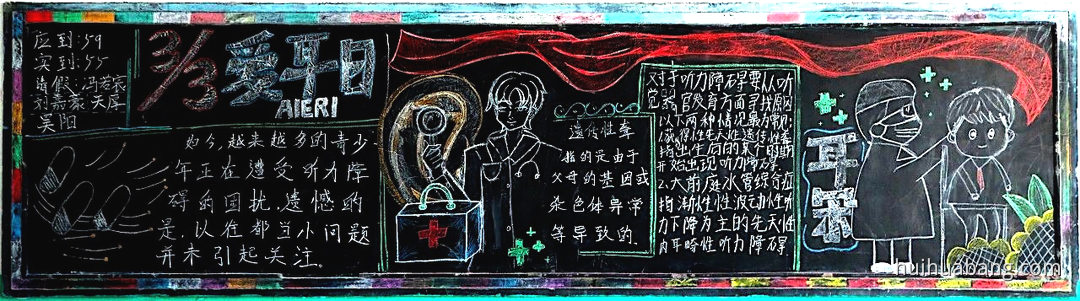 应到:59
实到:55
请假:冯若宸
刘嘉豪 天厚
吴阳
3/3爱耳日
AIERI
如今,越来越多的青少
年正在遭受听力障
碍的困扰,遗憾的
是,以往都当小问题
并未引起关注.
遗传性聋
指的是由于
父母的基因或
染色体异常
等导致的.
对于听力障碍要从听
觉器官发育方面寻找原因
以下两种情况最为常见:
2.大前庭水管综合症
指渐性性波动性听
力下降为主的先天性
内耳畸性听力障碍
耳聋
huihuabang.com